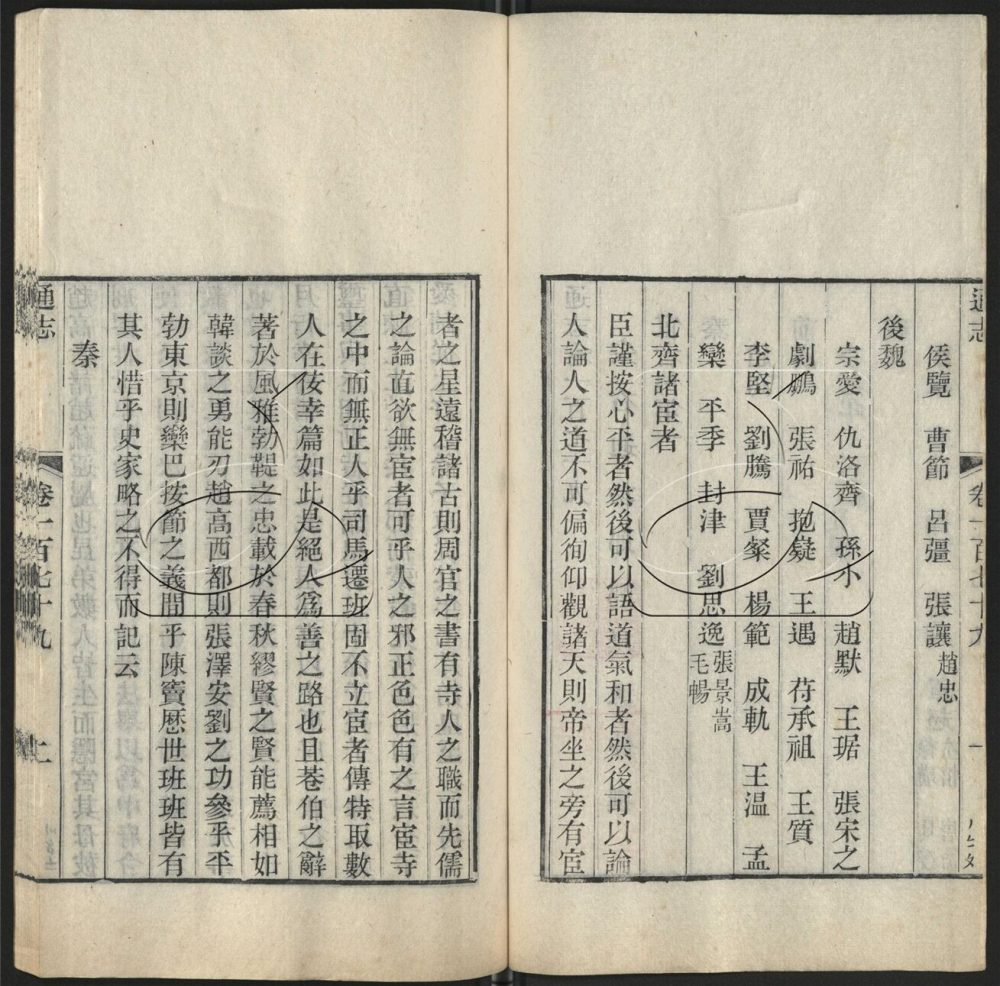 侯覽　曹節　呂彊　張讓趙忠
後魏
宗愛　仇洛齊　孫小　趙默　王琚　張宋之
劇鵬　張祐　抱嶷　王遇　苻承祖　王質
李堅　劉騰　賈粲　楊範　成軌　王溫　孟
欒　平季　封津　劉思逸張景嵩毛暢
北齊諸宦者
臣謹按心平者然後可以語道氣和者然後可以論
人論人之道不可偏徇仰觀諸天則帝坐之旁有宦
者之星遠稽諸古則周官之書有寺人之職而先儒
之論直欲無宦者可乎人之邪正色色有之言宦寺
之中而無正人乎司馬遷班固不立宦者傳特取數
人在佞幸篇如此是絕人爲善之路也且巷伯之辭
著於風雅勃鞮之忠載於春秋繆賢之賢能薦相如
韓談之勇能刃趙高西都則張澤安劉之功參乎平
勃東京則欒巴按節之義間乎陳竇歷世班班皆有
其人惜乎史家略之不得而記云
秦
通志　卷一百七十九　二
通志　卷一百七十九　一